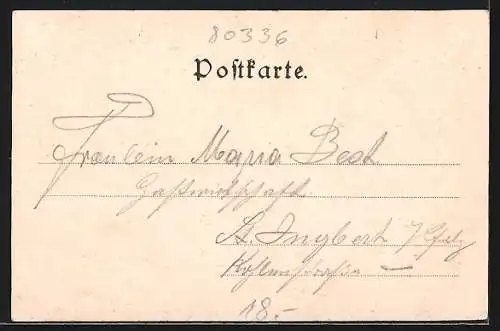 80336
Postkarte.
Fräulein Maria Best
Gastwirtschaft
St. Ingbert Pfalz
Kohlenstraße
18.-